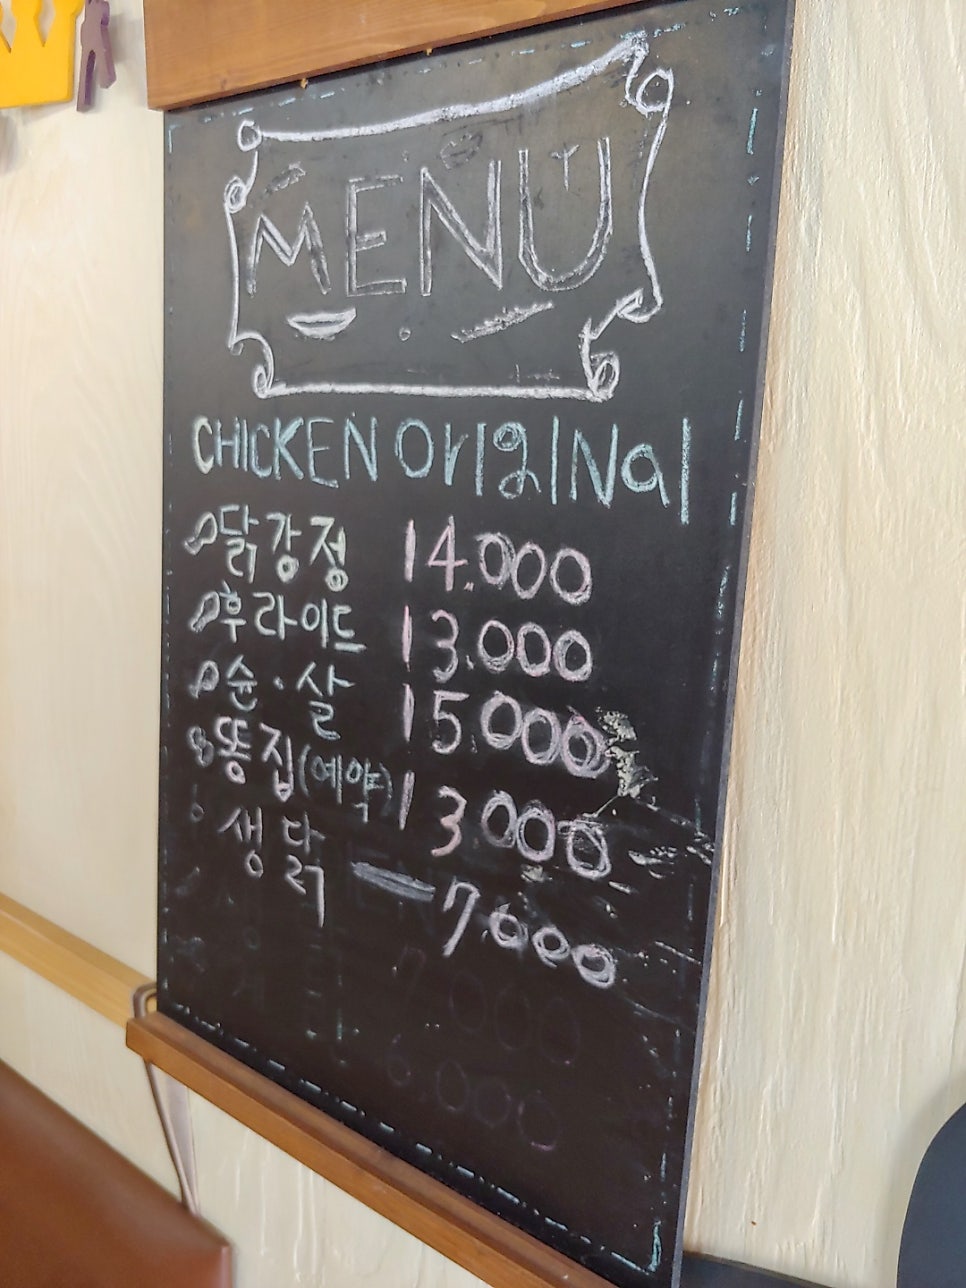 MENU
CHICKEN OrIgINal
닭강정 14.000
후라이드 13.000
순.살 15.000
똥집(예약) 13.000
생닭 7.000